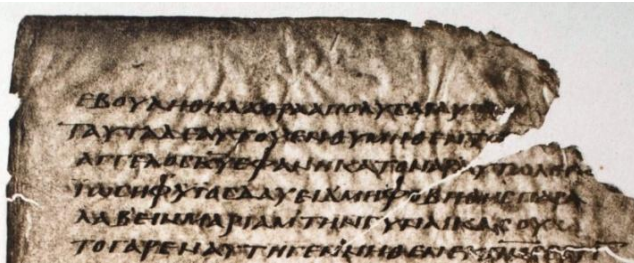 ΕΒΟΥΛΗΘΗΛΑΘΡΑΑΠΟΛΥϹΑΙΑΥΤΗΝ
ΤΑΥΤΑΔΕΑΥΤΟΥΕΝΘΥΜΗΘΕΝΤΟ
ΑΓΓΕΛΟϹΚΥΕΦΑΝΗΚΑΤΟΝΑΡΑΥΤΩΛΕΓΩ
ΪΩϹΗΦΥΪΟϹΔΑΥΕΙΔΜΗΦΟΒΗΘΗϹΠΑΡΑ
ΛΑΒΕΙΝΜΑΡΙΑΜΤΗΝΓΥΝΑΙΚΑϹΟΥ
ΤΟΓΑΡΕΝΑΥΤΗΓΕΝΝΗΘΕΝΕΚ